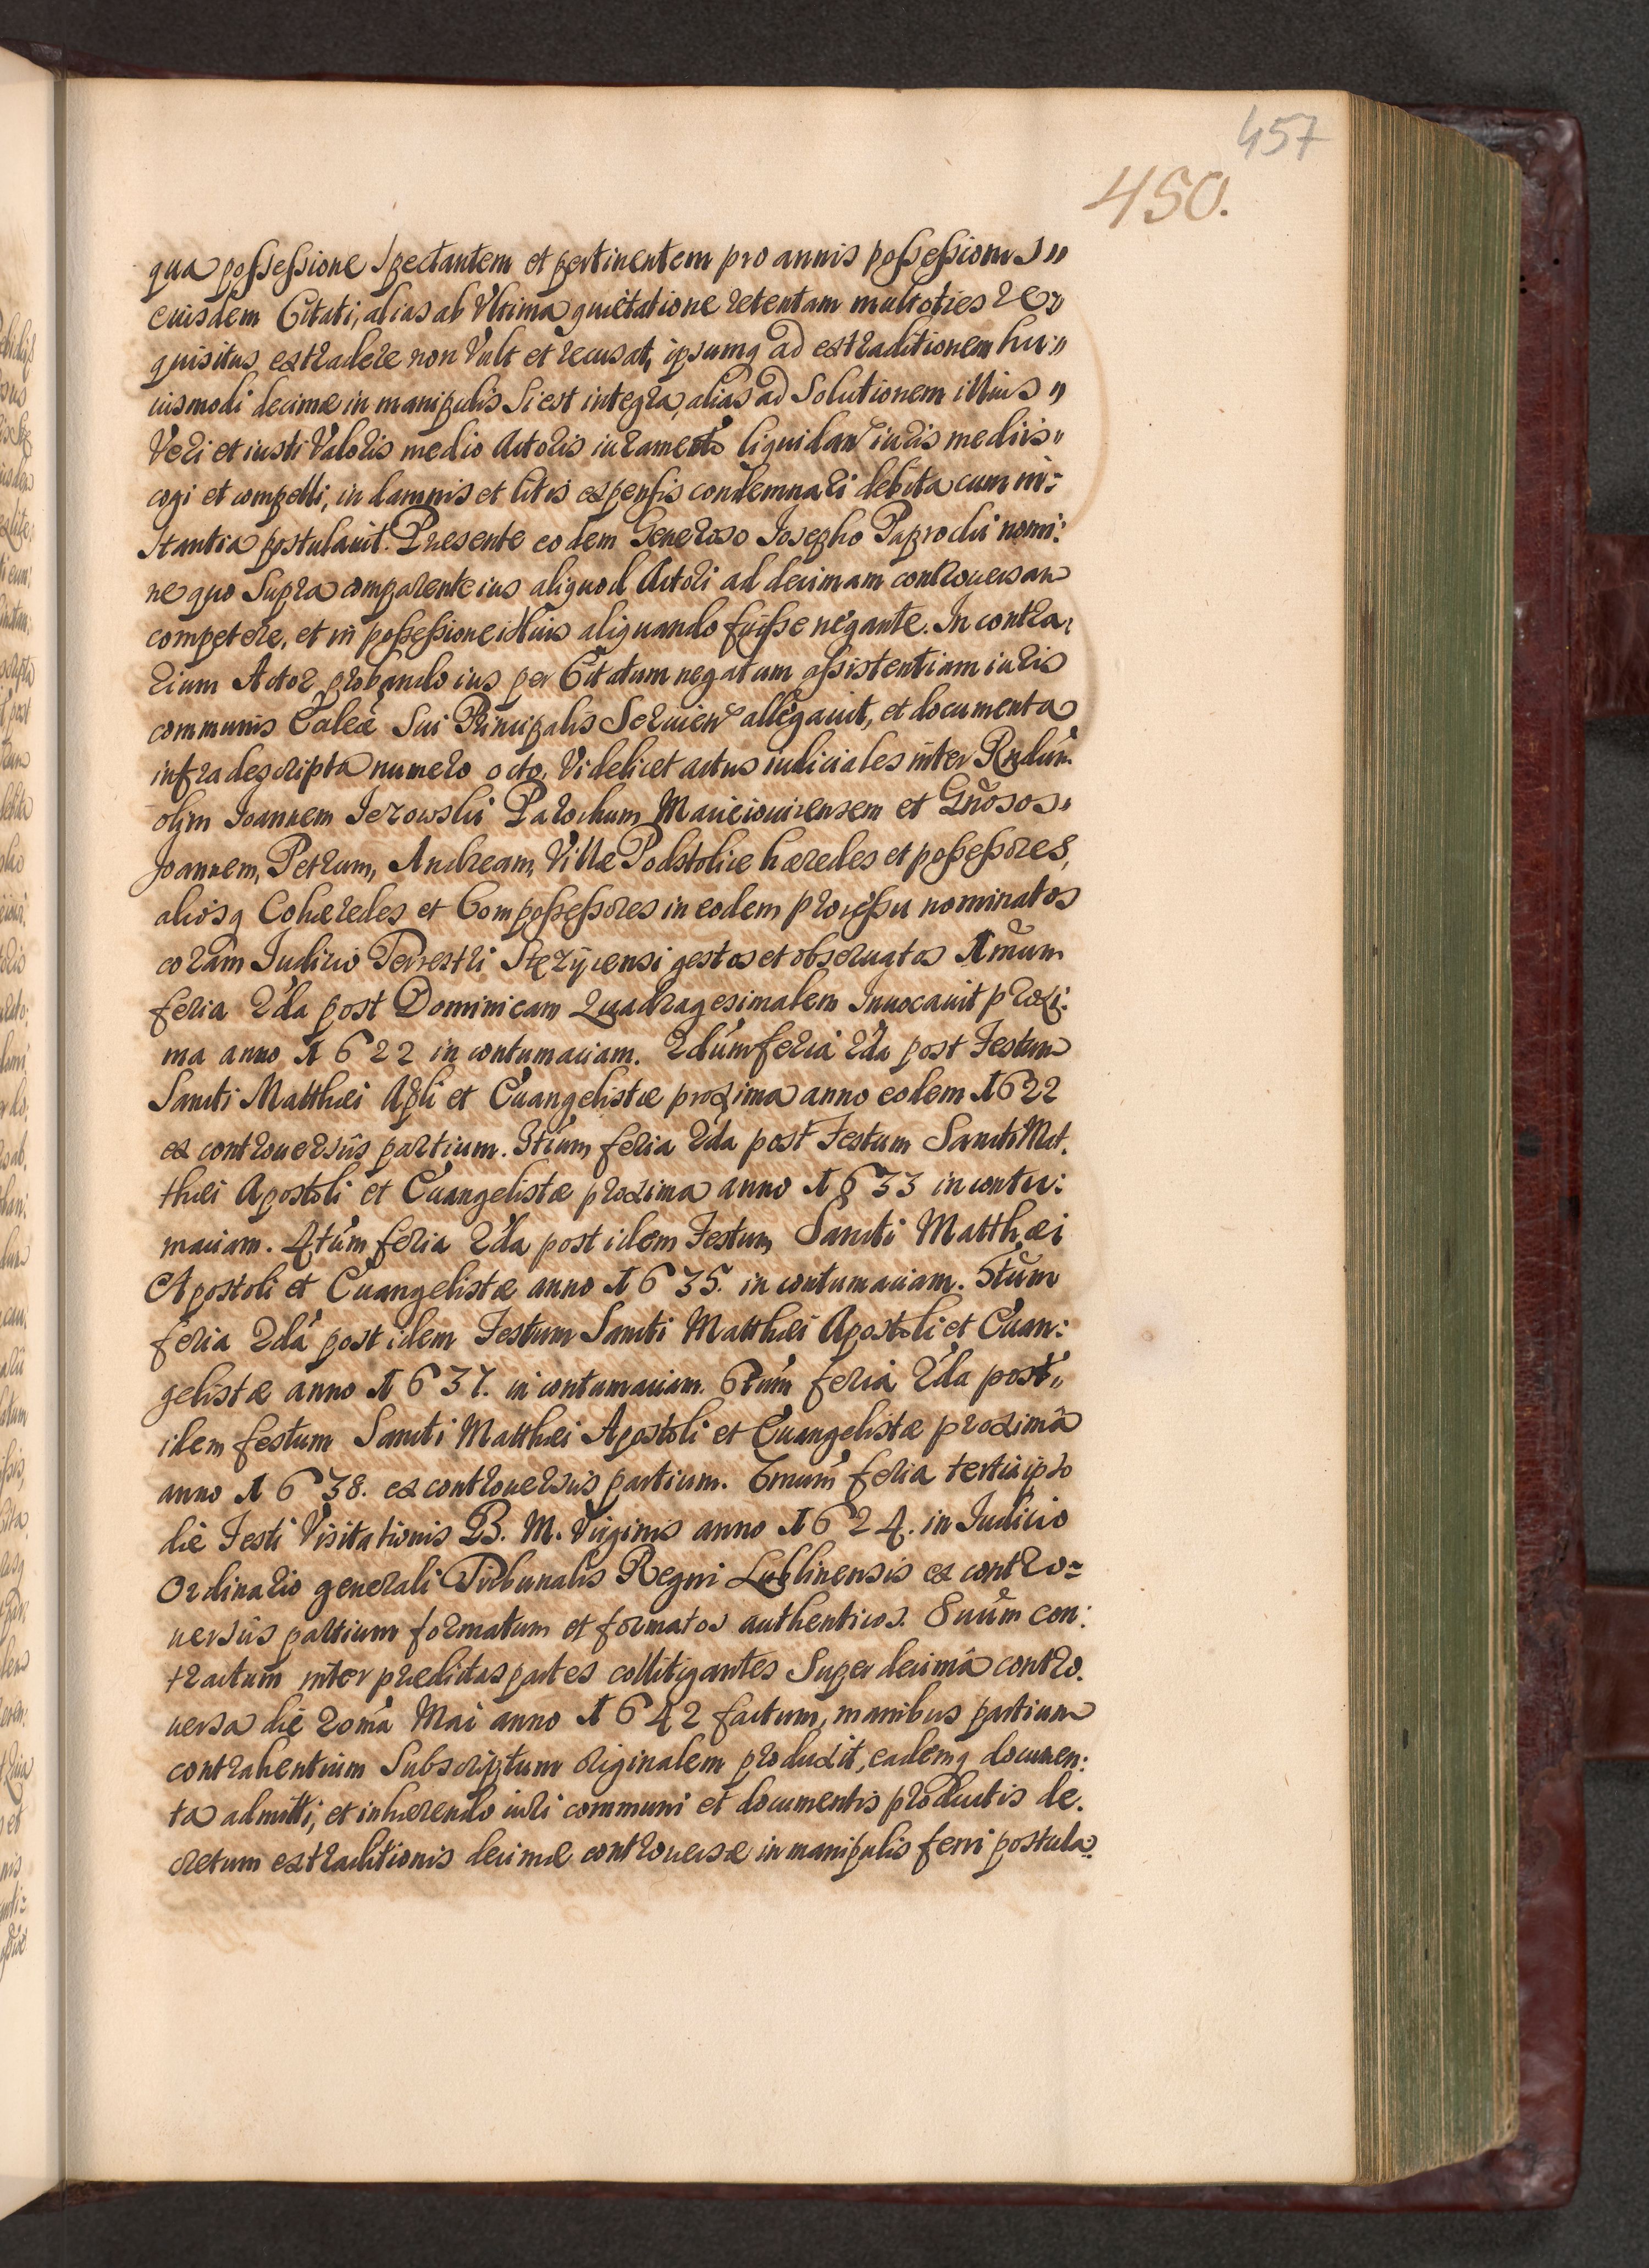 457
450.
qua possessione spectantem et pertinentem pro annis possessionis„
eiusdem Citati, alias ab Ultima quietatione retentam multoties re„
quisitus extradere non Vult et recusat, ipsumq ad extraditionem hu„
iusmodi decimæ in manipulis si est integra, alias ad solutionem illius„
Veri et iusti Valoris medio Actoris iuramento liquidan iuris mediis„
cogi et compelli, in damnis et litis expensis condemnari debita cum in:
stantia postulauit. Præsente eodem Generoso Josepho Paprocki nomi:
ne quo supra comparente ius aliquod Actori ad decimam controuersam
competere, et in possessione illius aliquando fuisse negante. In contra:
rium Actor probando ius per Citatum negatum assistentiam iuris
communis Caleæ sui Principalis Seruien allegauit, et documenta
infradescripta numero octo, Videlicet actus iudiciales inter Rndum
olim Joannem Jezowski Parochum Macieiouicensem et Gnõsos„
Joannem, Petrum, Andream, Villæ Podstolice hæredes et possessores,
aliosq Cohæredes et Compossessores in eodem processu nominatos
coram Judicio Terrestri Stęzycensi gestos et obseruatos 1mum
feria 2da post Dominicam Quadragesimalem Inuocauit proxi:
ma anno 1622 in contumaciam. 2dum feria 2da post Festum
Sancti Matthæi Apli et Euangelistæ proxima anno eodem 1622
ex controuersiis partium. 3tium feria 2da post Festum Sancti Mat.
thæi Apostoli et Euangelistæ proxima anno 1633 in contu:
maciam. 4tum feria 2da post idem Festum Sancti Matthæi
Apostoli et Euangelistæ anno 1635. in contumaciam. 5tum
feria 2da post idem Festum Sancti Matthæi Apostoli et Euan:
gelistæ anno 1637. in contumaciam. 6tum feria 2da post„
idem festum Sancti Matthæi Apostoli et Euangelistæ proxima
anno 1638. ex controuersiis partium. 7mum feria tertia ipso
die Festi Visitationis B. M. Virginis anno 1624. in Judicio
Ordinario generali Tribunalis Regni Lublinensis ex contro=
uersiis partium formatum et formatos authenticos. 8uum con:
tractum inter prædictas partes collitigantes super decima contro.
uersa die 20ma Mai anno 1642 factum, manibus partium
contrahentium subscriptum originalem produxit, eademq documen:
ta admitti, et inhærendo iuri communi et documentis productis de.
cretum extraditionis decimæ controuersæ in manipulis ferri postula: